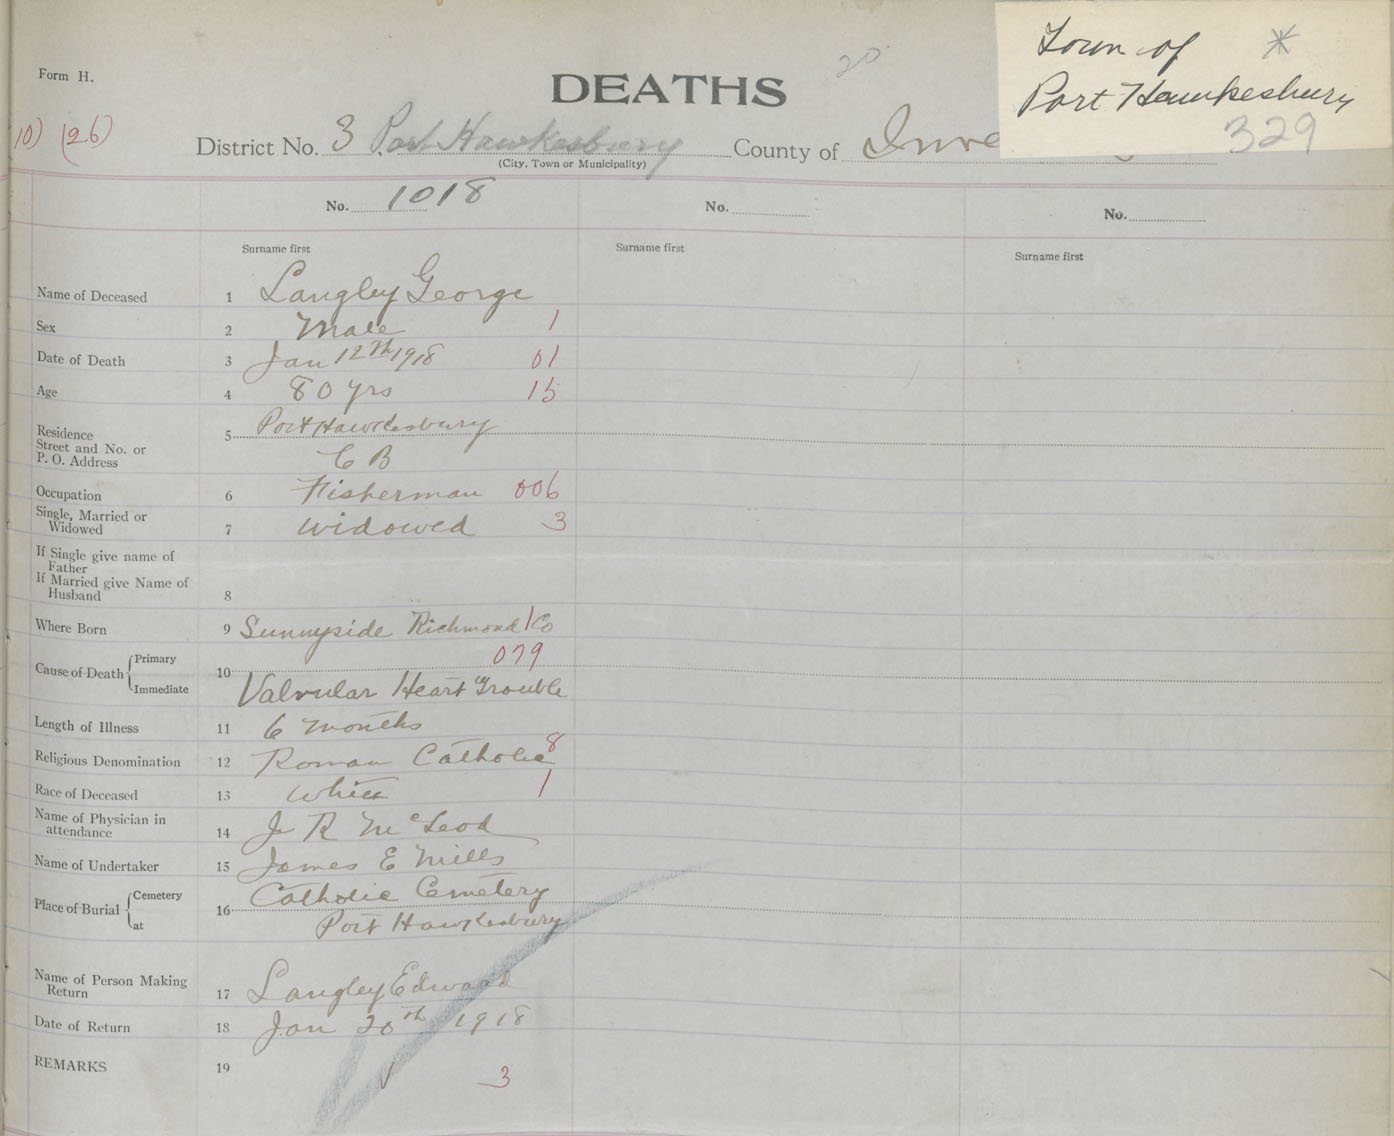 Form H.
20
Town of *
Port Hawkesbury
329
DEATHS
10) (26)
District No. 3 Port Hawkesbury County of Inve
(City, Town or Municipality)
No. 1018 No. No.
Surname first Surname first Surname first
Name of Deceased 1 Langley George
Sex 2 Male 1
Date of Death 3 Jan 12th 1918 01
Age 4 80 yrs 15
Residence 5 Port Hawkesbury
Street and No. or
P. O. Address C B
Occupation 6 Fisherman 006
Single, Married or
Widowed 7 widowed 3
If Single give name of
Father
If Married give Name of
Husband 8
Where Born 9 Sunnyside Richmond 1 Co
Primary 079
Cause of Death 10
Immediate Valvular Heart Trouble
Length of Illness 11 6 months
Religious Denomination 12 Roman Catholic 8
Race of Deceased 13 White 1
Name of Physician in
attendance 14 J R McLeod
Name of Undertaker 15 James E Mills
Cemetery Catholic Cemetery
Place of Burial 16
at Port Hawkesbury
Name of Person Making
Return 17 Langley Edward
Date of Return 18 Jan 20th 1918
REMARKS 19
3